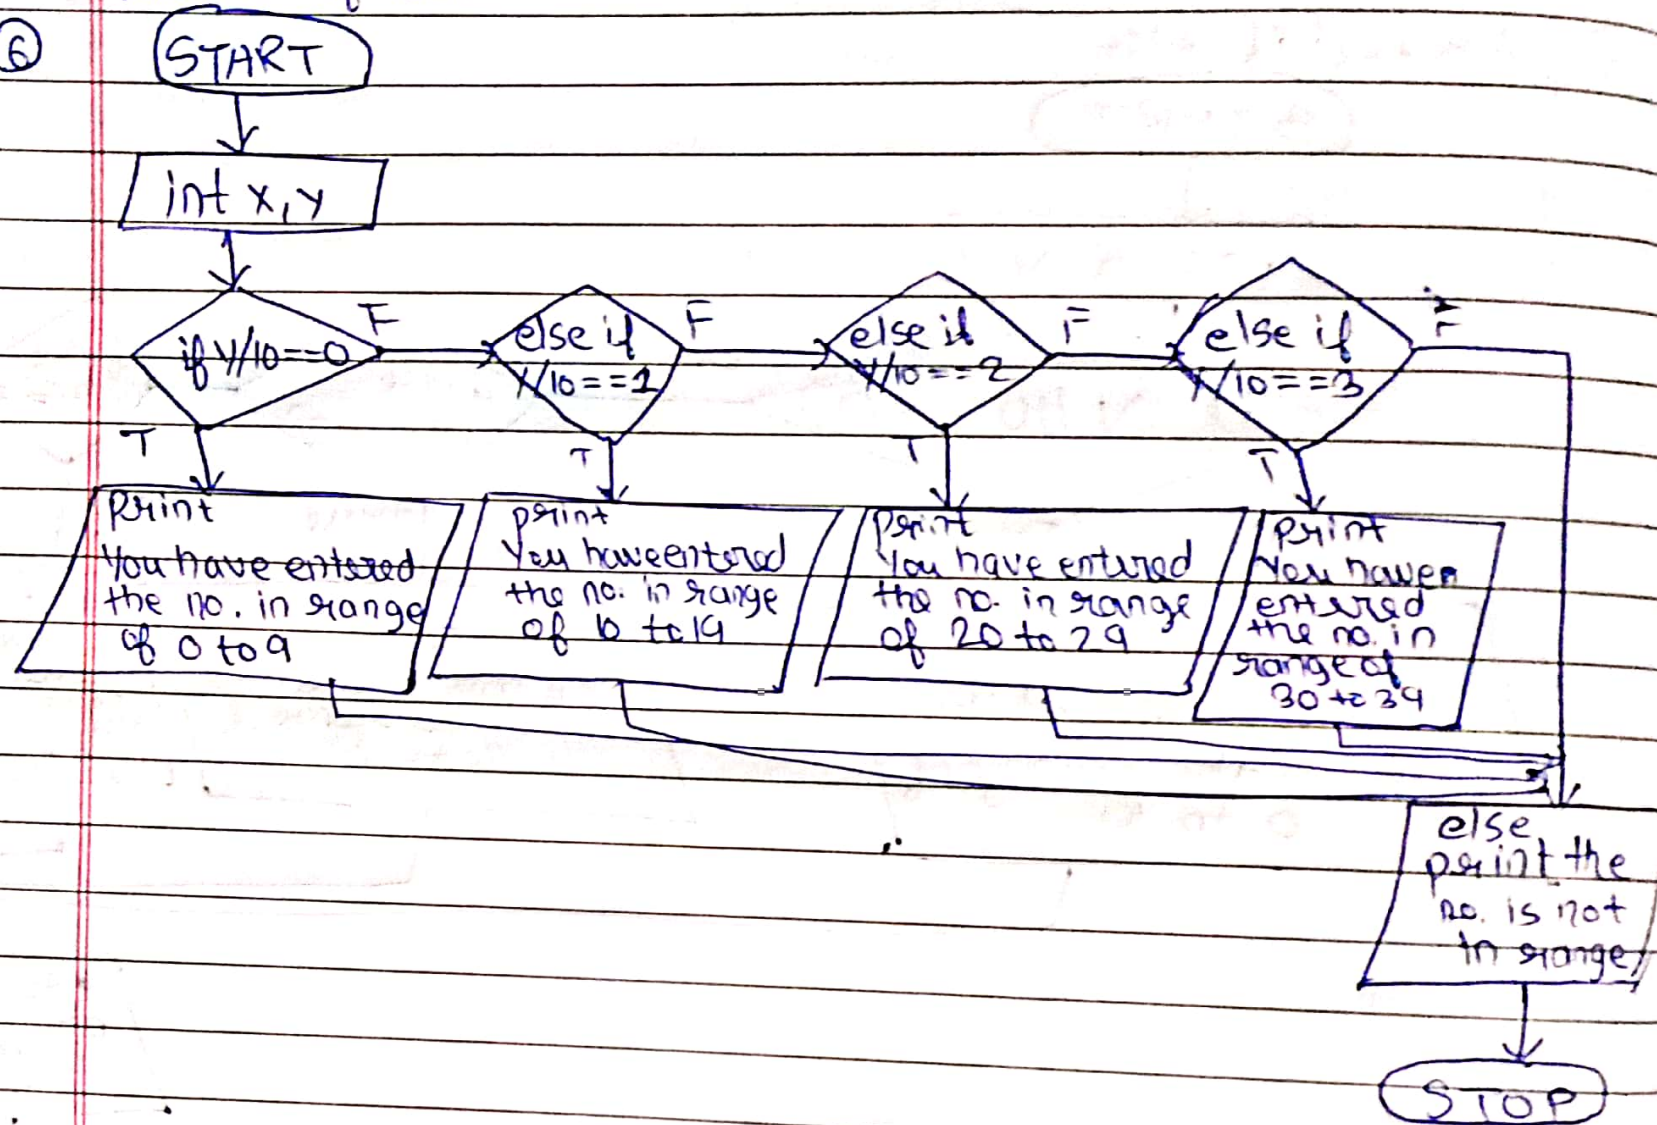 6
START
int x, y
if y/10==0
F
else if
y/10==1
F
else if
y/10==2
F
else if
y/10==3
F
T
T
T
T
print
You have entered
the no. in range
of 0 to 9
print
You have entered
the no. in range
of 10 to 19
print
You have entered
the no. in range
of 20 to 29
print
You have
entered
the no. in
range of
30 to 39
else
print the
no. is not
in range
STOP